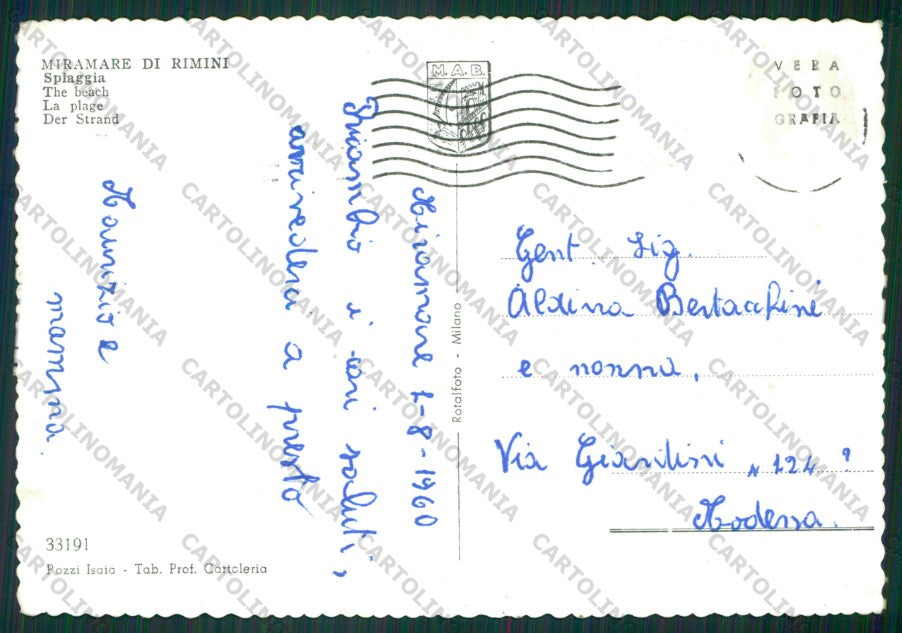 MIRAMARE DI RIMINI
Spiaggia
The beach
La plage
Der Strand
M.A.B.
VERA
FOTO
GRAFIA
Miramare 7-8-1960
Ricambio i cari saluti,
arrivederci a presto
Maurizio e
mamma.
Gent. Sig.
Aldina Bertacchini
e nonna,
Via Giardini N 124
Modena.
Rotalfoto - Milano
33191
Pozzi Isaia - Tab. Prof. Cartoleria
CARTOLINOMANIA